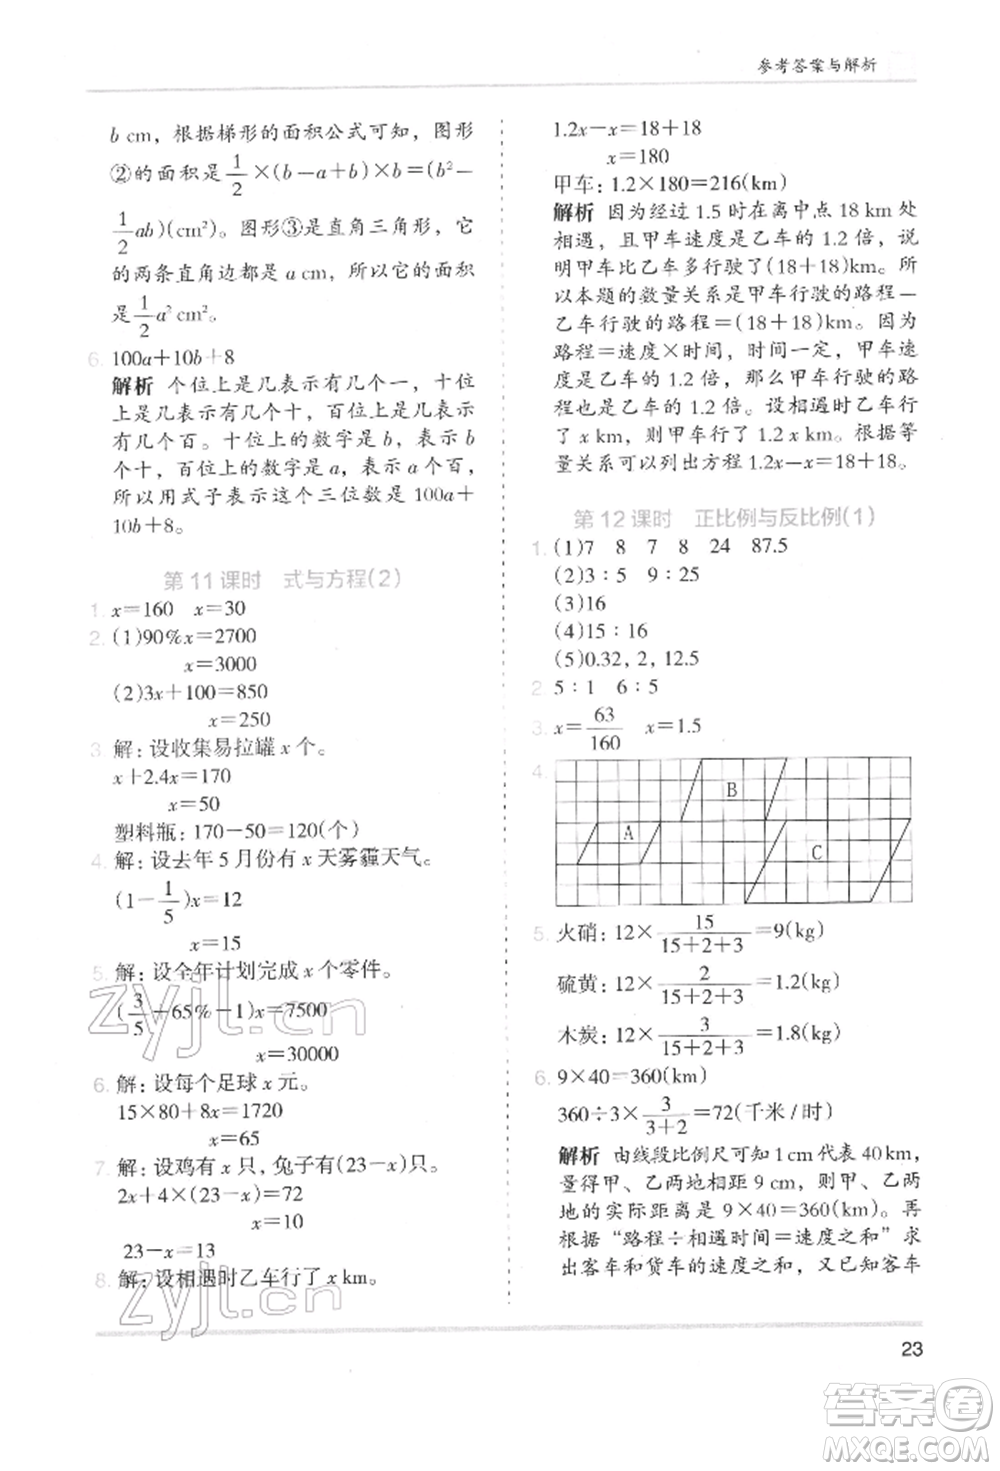 参考答案与解析
b cm，根据梯形的面积公式可知，图形
②的面积是1/2×(b－a＋b)×b＝(b²－
1/2ab)(cm²)。图形③是直角三角形，它
的两条直角边都是 a cm，所以它的面积
是1/2a² cm²。
6. 100a＋10b＋8
解析 个位上是几表示有几个一，十位
上是几表示有几个十，百位上是几表示
有几个百。十位上的数字是 b，表示 b
个十，百位上的数字是 a，表示 a 个百，
所以用式子表示这个三位数是 100a＋
10b＋8。
第 11 课时 式与方程(2)
1. x＝160 x＝30
2. (1)90%x＝2700
x＝3000
(2)3x＋100＝850
x＝250
3. 解：设收集易拉罐 x 个。
x＋2.4x＝170
x＝50
塑料瓶：170－50＝120(个)
4. 解：设去年 5 月份有 x 天雾霾天气。
(1－1/5)x＝12
x＝15
5. 解：设全年计划完成 x 个零件。
(3/5＋65%－1)x＝7500
x＝30000
6. 解：设每个足球 x 元。
15×80＋8x＝1720
x＝65
7. 解：设鸡有 x 只，兔子有(23－x)只。
2x＋4×(23－x)＝72
x＝10
23－x＝13
8. 解：设相遇时乙车行了 x km。
1.2x－x＝18＋18
x＝180
甲车：1.2×180＝216(km)
解析 因为经过 1.5 时在离中点 18 km 处
相遇，且甲车速度是乙车的 1.2 倍，说
明甲车比乙车多行驶了(18＋18)km。所
以本题的数量关系是甲车行驶的路程－
乙车行驶的路程＝(18＋18)km。因为
路程＝速度×时间，时间一定，甲车速
度是乙车的 1.2 倍，那么甲车行驶的路
程也是乙车的 1.2 倍。设相遇时乙车行
了 x km，则甲车行了 1.2 x km。根据等
量关系可以列出方程 1.2x－x＝18＋18。
第 12 课时 正比例与反比例(1)
1. (1)7 8 7 8 24 87.5
(2)3：5 9：25
(3)16
(4)15：16
(5)0.32，2，12.5
2. 5：1 6：5
3. x＝63/160 x＝1.5
4.
A B C
5. 火硝：12×15/(15＋2＋3)＝9(kg)
硫黄：12×2/(15＋2＋3)＝1.2(kg)
木炭：12×3/(15＋2＋3)＝1.8(kg)
6. 9×40＝360(km)
360÷3×3/(3＋2)＝72(千米/时)
解析 由线段比例尺可知 1 cm 代表 40 km，
量得甲、乙两地相距 9 cm，则甲、乙两
地的实际距离是 9×40＝360(km)。再
根据“路程÷相遇时间＝速度之和”求
出客车和货车的速度之和，又已知客车
23
zyjl.cn
zyjl.cn
答案圈
MXQE.COM